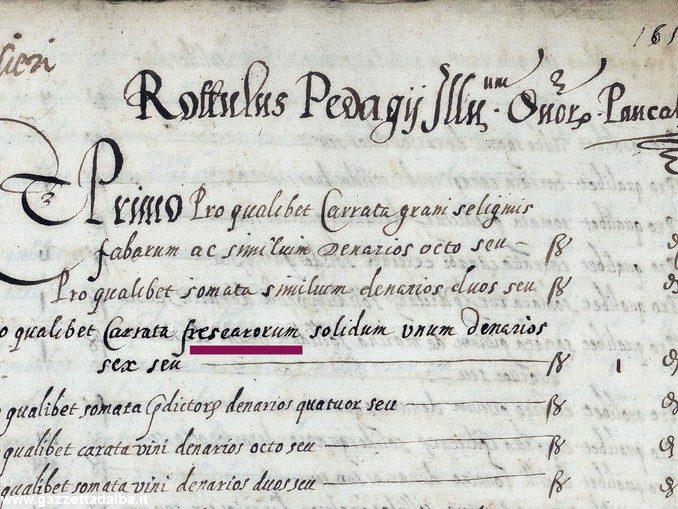 161
sieri
Rottulus Pedagij Illu.um Dnor. Pancal
Et Primo Pro qualibet Carrata grani seliginis
fabarum ac similium denarios octo seu ß d
Pro qualibet somata similium denarios duos seu ß d
o qualibet Carrata frescarorum solidum unum denarios
sex seu ß 1 d
qualibet somata pdictor. denarios quatuor seu ß d
qualibet carata vini denarios octo seu ß d
qualibet somata vini denarios duos seu ß
© www.gazzettadalba.it